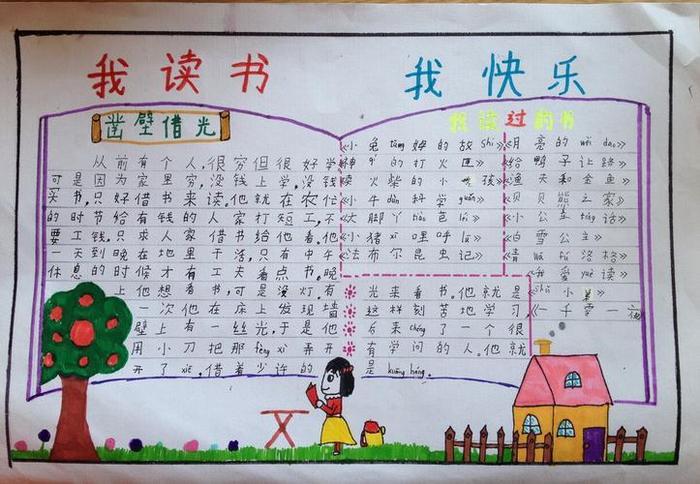 我读书
我快乐
凿壁借光
从前有个人,很穷但很好学
可是因为家里穷,没钱上学,没钱
买书,只好借书来读,他就在农忙
的时节给有钱的人家打短工,不
要工钱,只求人家借书给他看。他
一天到晚在地里干活,只有中午
休息的时候才有工夫看点书。晚
上他想看书,可是没灯。有
一次他在床上发现墙
壁上有一丝光,于是他
用小刀把那fèng xì弄开
开了xiē,借着少许的
光来看书。他就是
这样刻苦地学习,
后来chéng了一个很
有学问的人。他就
是kuāng héng.
我读过的书
《小兔tāng姆的故shì》
《神qí的打火匣》
《卖火柴的小女孩》
《小牛dùn科学guǎn》
《大脚丫tiào芭lěi》
《小猪xī哩呼lū》
《法布尔昆虫记》
《月亮的wèi dao》
《给鸭子让路》
《渔夫和金鱼》
《贝贝熊之家》
《小公主tóng话》
《白雪公主》
《青wā fú洛格》
《我爱yuè读》